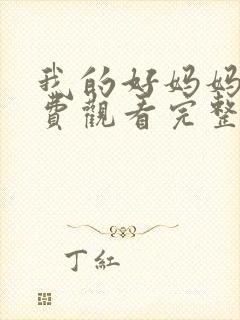 我的好妈妈
费觀看完整
丁紅